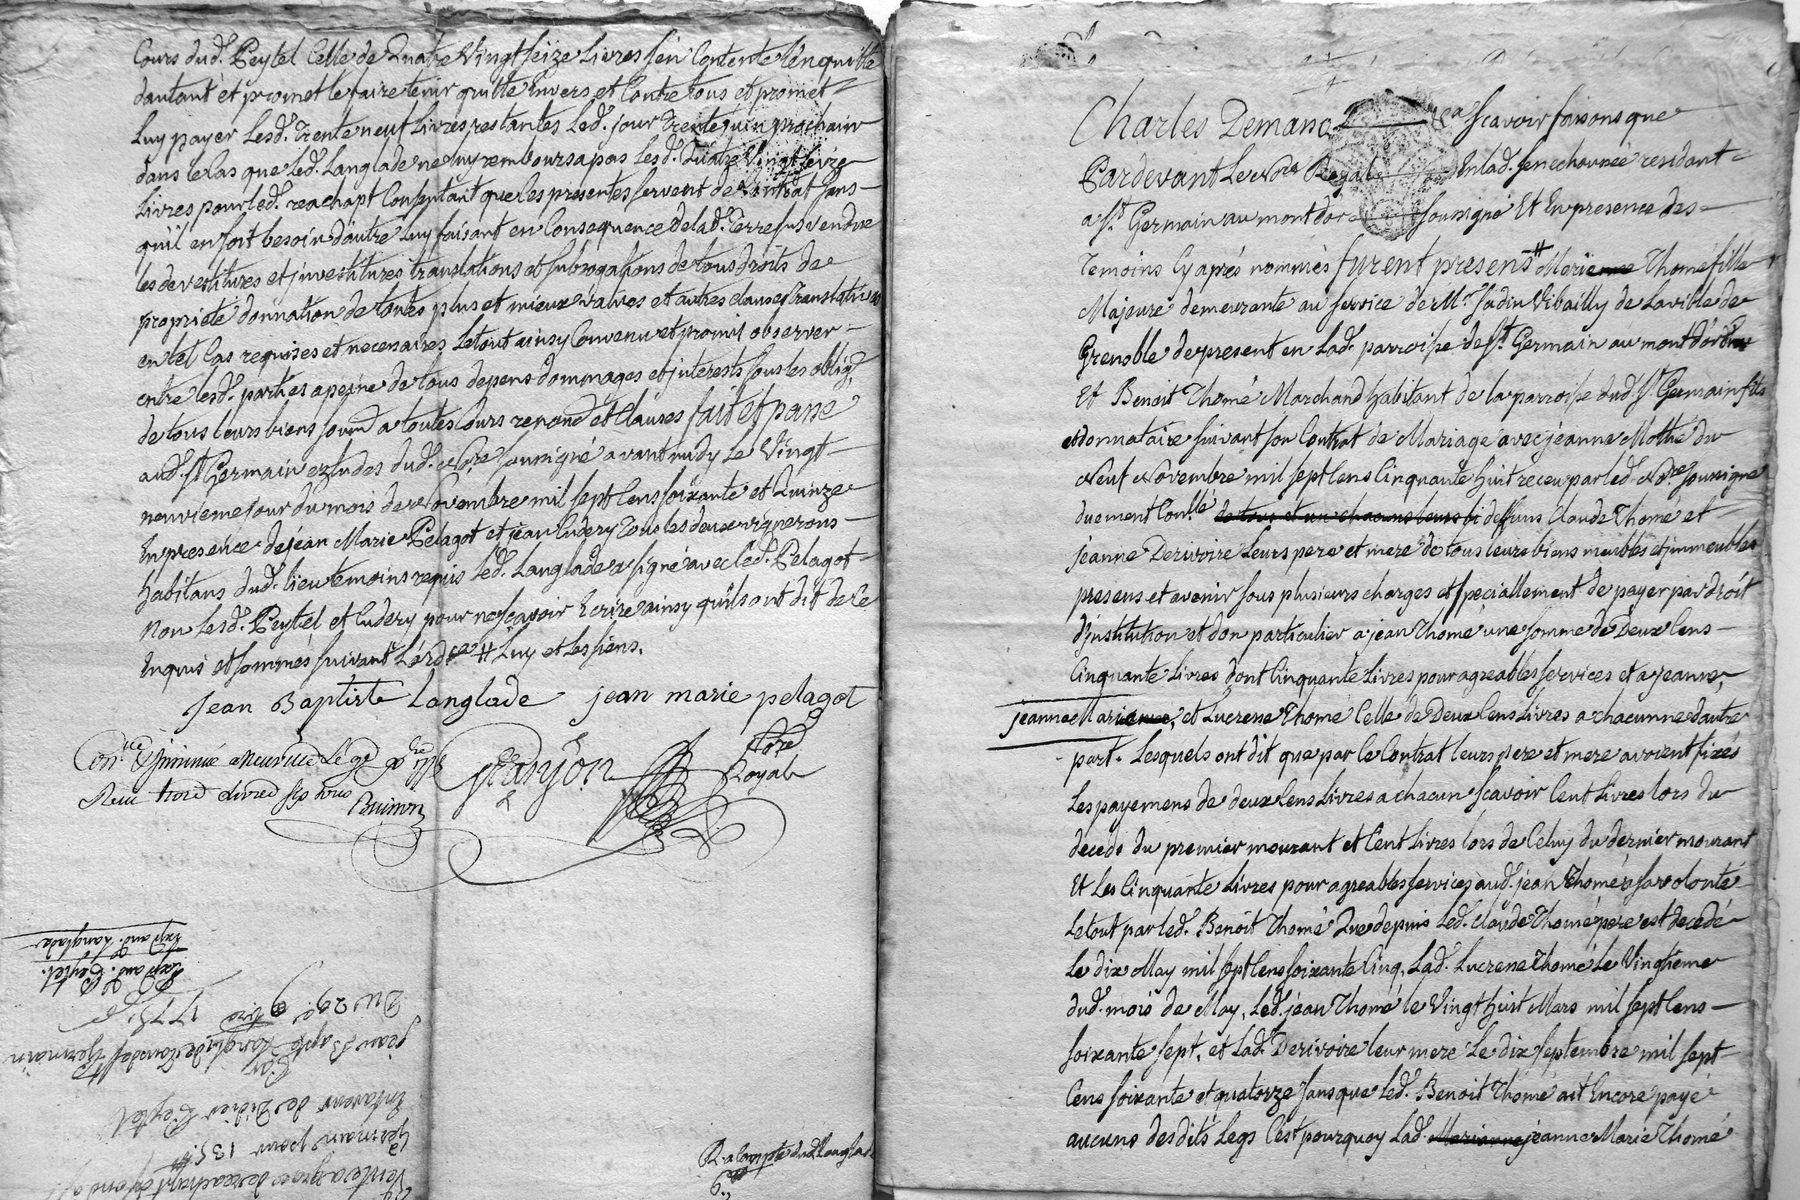 Cours dud. Peytel Celle de Quatre Vingt seize Livres s'en Contente l'en quitte
dautant et promet le faire tenir quitte Envers et Contre tous et promet
Luy payer Lesd. Trente neuf Livres restantes Led. jour Trente juin prochain
dans le Cas que Led. Langlade ne luy remboursa pas Lesd. Quatre Vingt seize
Livres pour led. reachapt Consentant que les presentes servent de Contrat sans
quil en soit besoin d'autre luy faisant en Consequence de lad. Terre sus vendue
les devestitures et investitures translations et subrogations de tous droits de
propriete donnation de toutes plus et mieux values et autres clauses translatives
en tel Cas requises et necenaires Le tout ainsy Convenu et promis observer
entre lesd. parties a peine de tous depens dommages et interests sous les oblig.
de tous leurs biens soumd a toutes Cours renond et Clauses fait et passé
aud. St Germain ez tudes dud. Nore sousigné avant midy Le Vingt
neuvieme jour du mois de Novembre mil sept Cens soixante et Quinze
En presence de jean Marie Pelagot et jean Cudery tous les deux vignerons
habitans dud. lieu temoins requis Led. Langlade a signé avec led. Pelagot
Non Lesd. Peytel et Cudery pour ne sçavoir Ecrire ainsy quils ont dit de ce
Enquis et sommés suivant L'ord.ce # Luy et Les siens.
Jean Baptiste Langlade jean marie pelagot
Granjon Nore Royal
Reçu trois Livres
Charles Demanc sçavoir faisons que
Pardevant Le Nore Royal En lad. senechaussée residant
a St. Germain au mont dor sousigné Et En presence des
Temoins Cy aprés nommés furent presens # Marianne Thomé fille
Majeure demeurante au service de Mr. Jadin Vibailly de La ville de
Grenoble de present en Lad. parroisse de St. Germain au mont dor
Et Benoit Thomé Marchand habitant de la parroisse dud. St Germain fils
et donnataire suivant son Contrat de Mariage avec jeanne Mothé du
Neuf Novembre mil sept Cens Cinquante huit receu par led. Nore sousigné
duement Conllé de tous et un chacuns leurs bi deffuns Claude Thomé et
jeanne Derivoire Leurs pere et mere de tous leurs biens meubles et immeubles
presens et avenir sous plusieurs charges et speciallement de payer par droit
d'institution et don particulier a jean Thomé une somme de Deux Cens
Cinquante Livres dont Cinquante Livres pour agreables services et a jeanne
jeanne Marianne, et Lucresse Thomé Celle de Deux Cens Livres a chacunne d'autre
part. Lesquels ont dit que par le Contrat leurs pere et mere avoient fixés
Les payemens de deux Cens Livres a chacun sçavoir Cent Livres lors du
deceds du premier mourant et Cent Livres lors de Celuy du dernier mourant
Et Les Cinquante Livres pour agreables services aud. jean Thomé a sa volonté
Le tout par led. Benoit Thomé Que depuis Led. Claude Thomé pere est decedé
Le dix May mil sept Cens soixante Cinq, Lad. Lucresse Thomé Le Vingtieme
dud. mois de May, Led. jean Thomé le Vingt huit Mars mil sept Cens
soixante sept, et Lad. Derivoire leur mere Le dix septembre mil sept
Cens soixante et quatorze sans que Led. Benoit Thomé ait Encore payé
aucuns desdits Legs C'est pourquoy Lad. Marianne jeanne Marie Thomé
Exp. aud. Langlade
Exp. aud. Peytel
Du 29e. 9bre 1775
Vente a grace de reachapt de fond a St
Germain pour 135#
En faveur de Didier Peytel
Par
jean Bapte Langlade dud. St Germain
R. a Compte dud Langlade
6